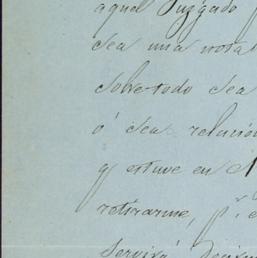 aquel Juzgado
sea una nota
sobre todo sea
ó sea relación
q estuve en el
retirarme, pr.
servirá